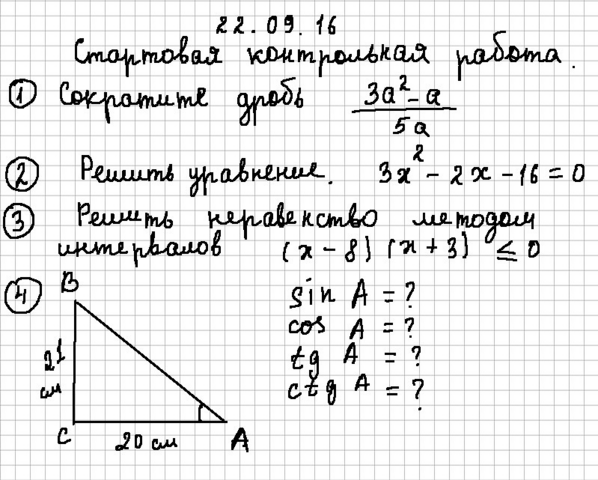 22.09.16
Стартовая контрольная работа.
① Сократите дробь (3a² - a)/(5a)
② Решить уравнение. 3x² - 2x - 16 = 0
③ Решить неравенство методом
интервалов (x - 8)(x + 3) ≤ 0
④ B
sin A = ?
cos A = ?
tg A = ?
ctg A = ?
21
см
C 20 см A